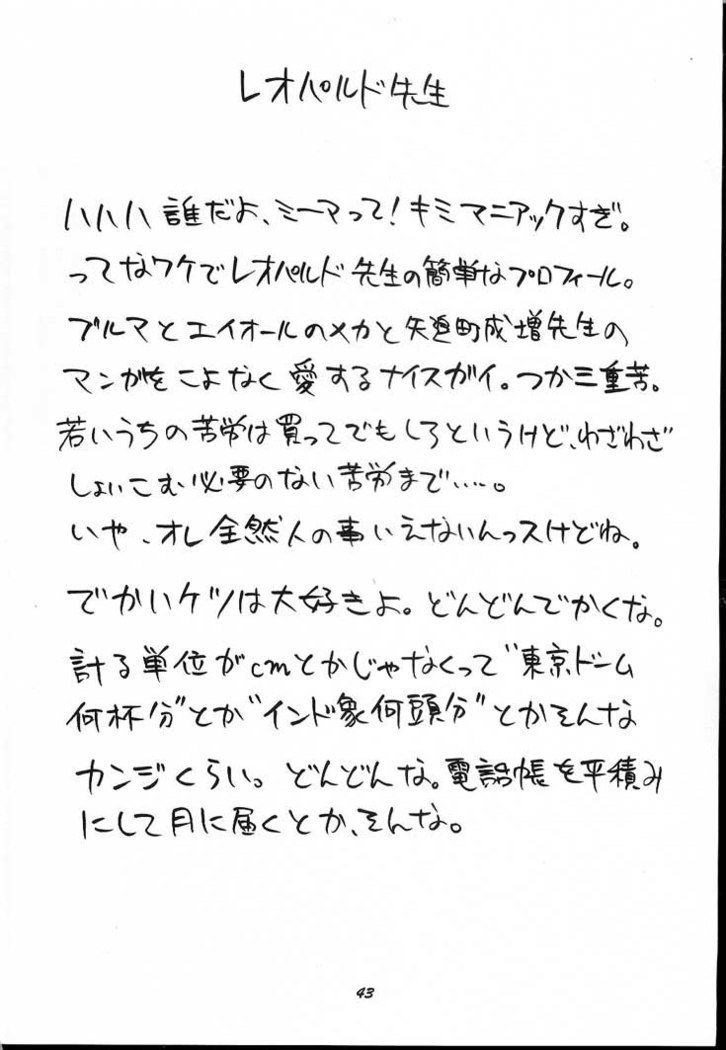 レオパルド先生
ハハハ 誰だよ、ミーマって!キミマニアックすぎ。
ってなワケでレオパルド先生の簡単なプロフィール。
ブルマとエイオールのメカと矢追町成増先生の
マンガをこよなく愛するナイスガイ。つか三重苦。
若いうちの苦労は買ってでもしろというけど、わざわざ
しょいこむ必要のない苦労まで……。
いや、オレ全然人の事いえないんっスけどね。
でかいケツは大好きよ。どんどんでかくな。
計る単位がcmとかじゃなくって"東京ドーム
何杯分"とか"インド象何頭分"とかそんな
カンジくらい。どんどんな。電話帳を平積み
にして月に届くとか、そんな。
43